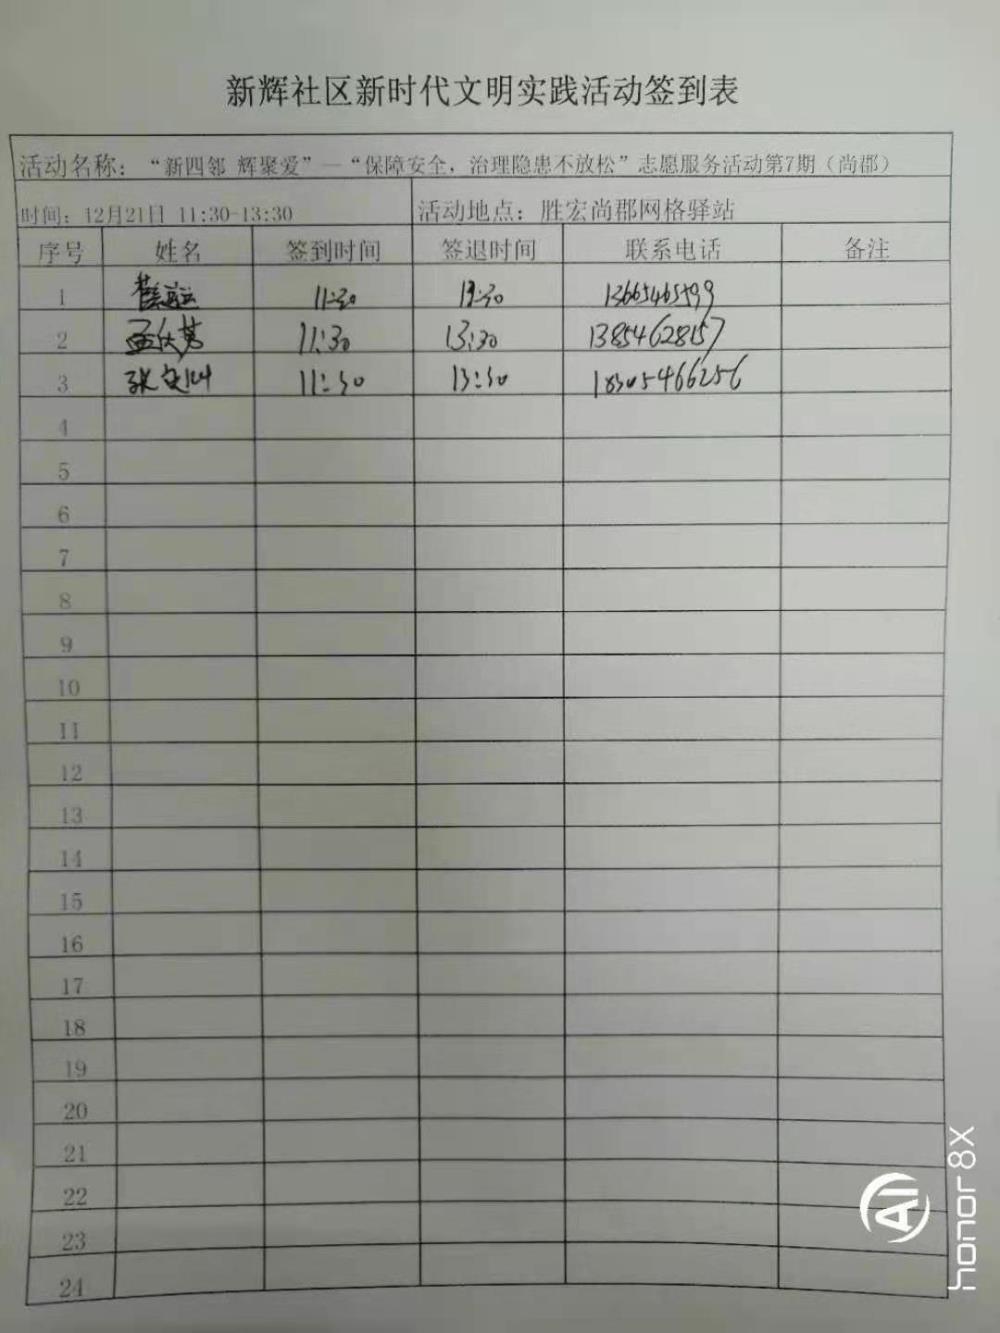 新辉社区新时代文明实践活动签到表
活动名称：“新四邻 辉聚爱”—“保障安全，治理隐患不放松”志愿服务活动第7期（尚郡）
时间：12月21日 11:30-13:30 活动地点：胜宏尚郡网格驿站
序号 姓名 签到时间 签退时间 联系电话 备注
1 11:30 13:30
2 11:30 13:30 13854628157
3 11:30 13:30 18305466256
4
5
6
7
8
9
10
11
12
13
14
15
16
17
18
19
20
21
22
23
24
AI
honor 8X